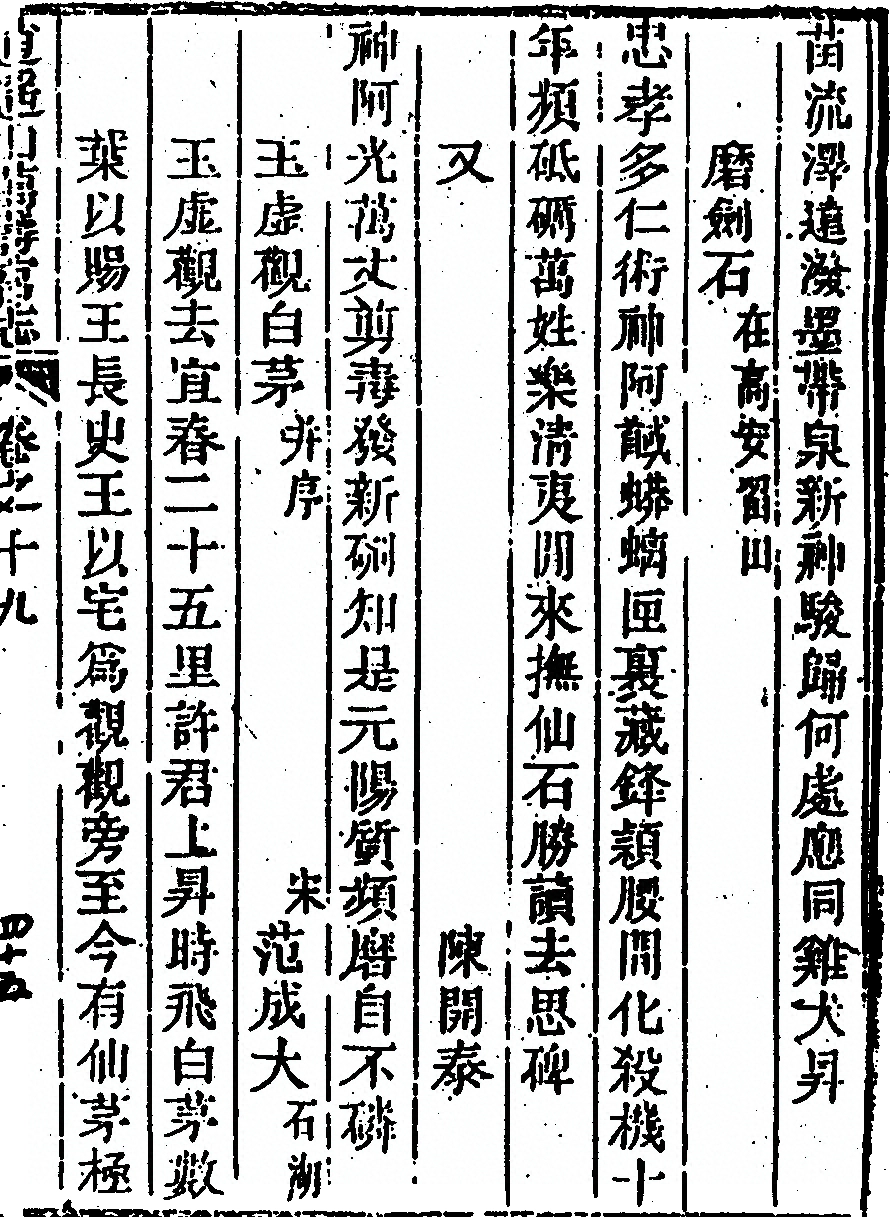 苗流澤遠潑墨帶泉新神駿歸何處應同雞犬昇
磨劍石在高安習田
忠孝多仁術神阿馘蟒螭匣裏藏鋒頴腰間化殺機十
年頻砥礪萬姓樂清夷閒來撫仙石勝讀去思碑
又 陳開泰
神阿光萬丈剪毒發新硎知是元陽質頻磨自不磷
玉虛觀白茅并序 宋范成大石湖
玉虛觀去宜春二十五里許君上昇時飛白茅數
葉以賜王長史王以宅爲觀觀旁至今有仙茅極
逍遙山萬壽宮志 卷之十九 四十五